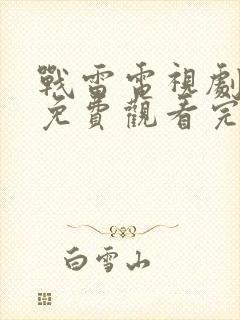 戰雷電視劇
免費觀看完
白雪山